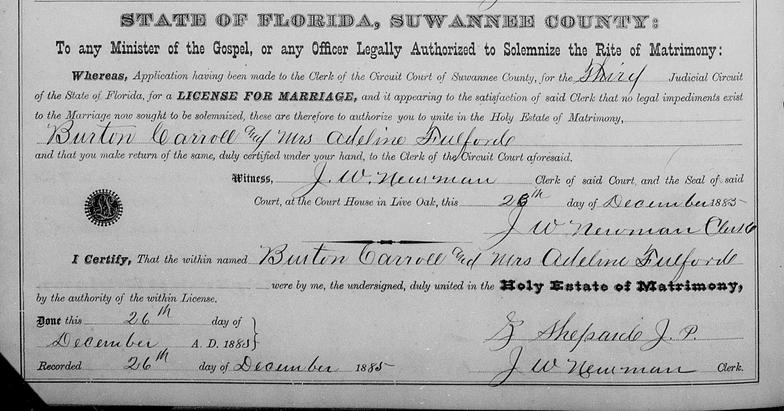 STATE OF FLORIDA, SUWANNEE COUNTY:
To any Minister of the Gospel, or any Officer Legally Authorized to Solemnize the Rite of Matrimony:
Whereas, Application having been made to the Clerk of the Circuit Court of Suwannee County, for the Third Judicial Circuit
of the State of Florida, for a LICENSE FOR MARRIAGE, and it appearing to the satisfaction of said Clerk that no legal impediments exist
to the Marriage now sought to be solemnized, these are therefore to authorize you to unite in the Holy Estate of Matrimony,
Burton Carroll and Mrs Adeline Fulford
and that you make return of the same, duly certified under your hand, to the Clerk of the Circuit Court aforesaid.
Witness, J. W. Newman Clerk of said Court, and the Seal of said
Court, at the Court House in Live Oak, this day of December 1885
J W Newman Clerk
I Certify, That the within named Burton Carroll and Mrs Adeline Fulford
were by me, the undersigned, duly united in the Holy Estate of Matrimony,
by the authority of the within License.
Done this 26th day of
December A. D. 1885
Shepard J. P.
Recorded 26th day of December 1885 J W Newman Clerk.